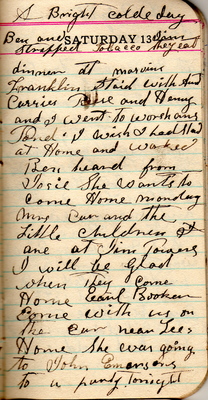 A Bright colde day
Ben and Jim
SATURDAY 13
stripped Tobacco they eat
dinner at marvins
Franklin staid with Aunt
Carries Rose and Henry
and I went to worshans
and I wish I had staid
at Home and worked
Ben heard from
Josie She wants to
come Home monday
Mrs Carr and the
little children
are at Jim Towens
I will be glad
when they come
Home Earl Booker
Come with us on
the Car near Lees
Home She was going
to John Emersons
to a party tonight